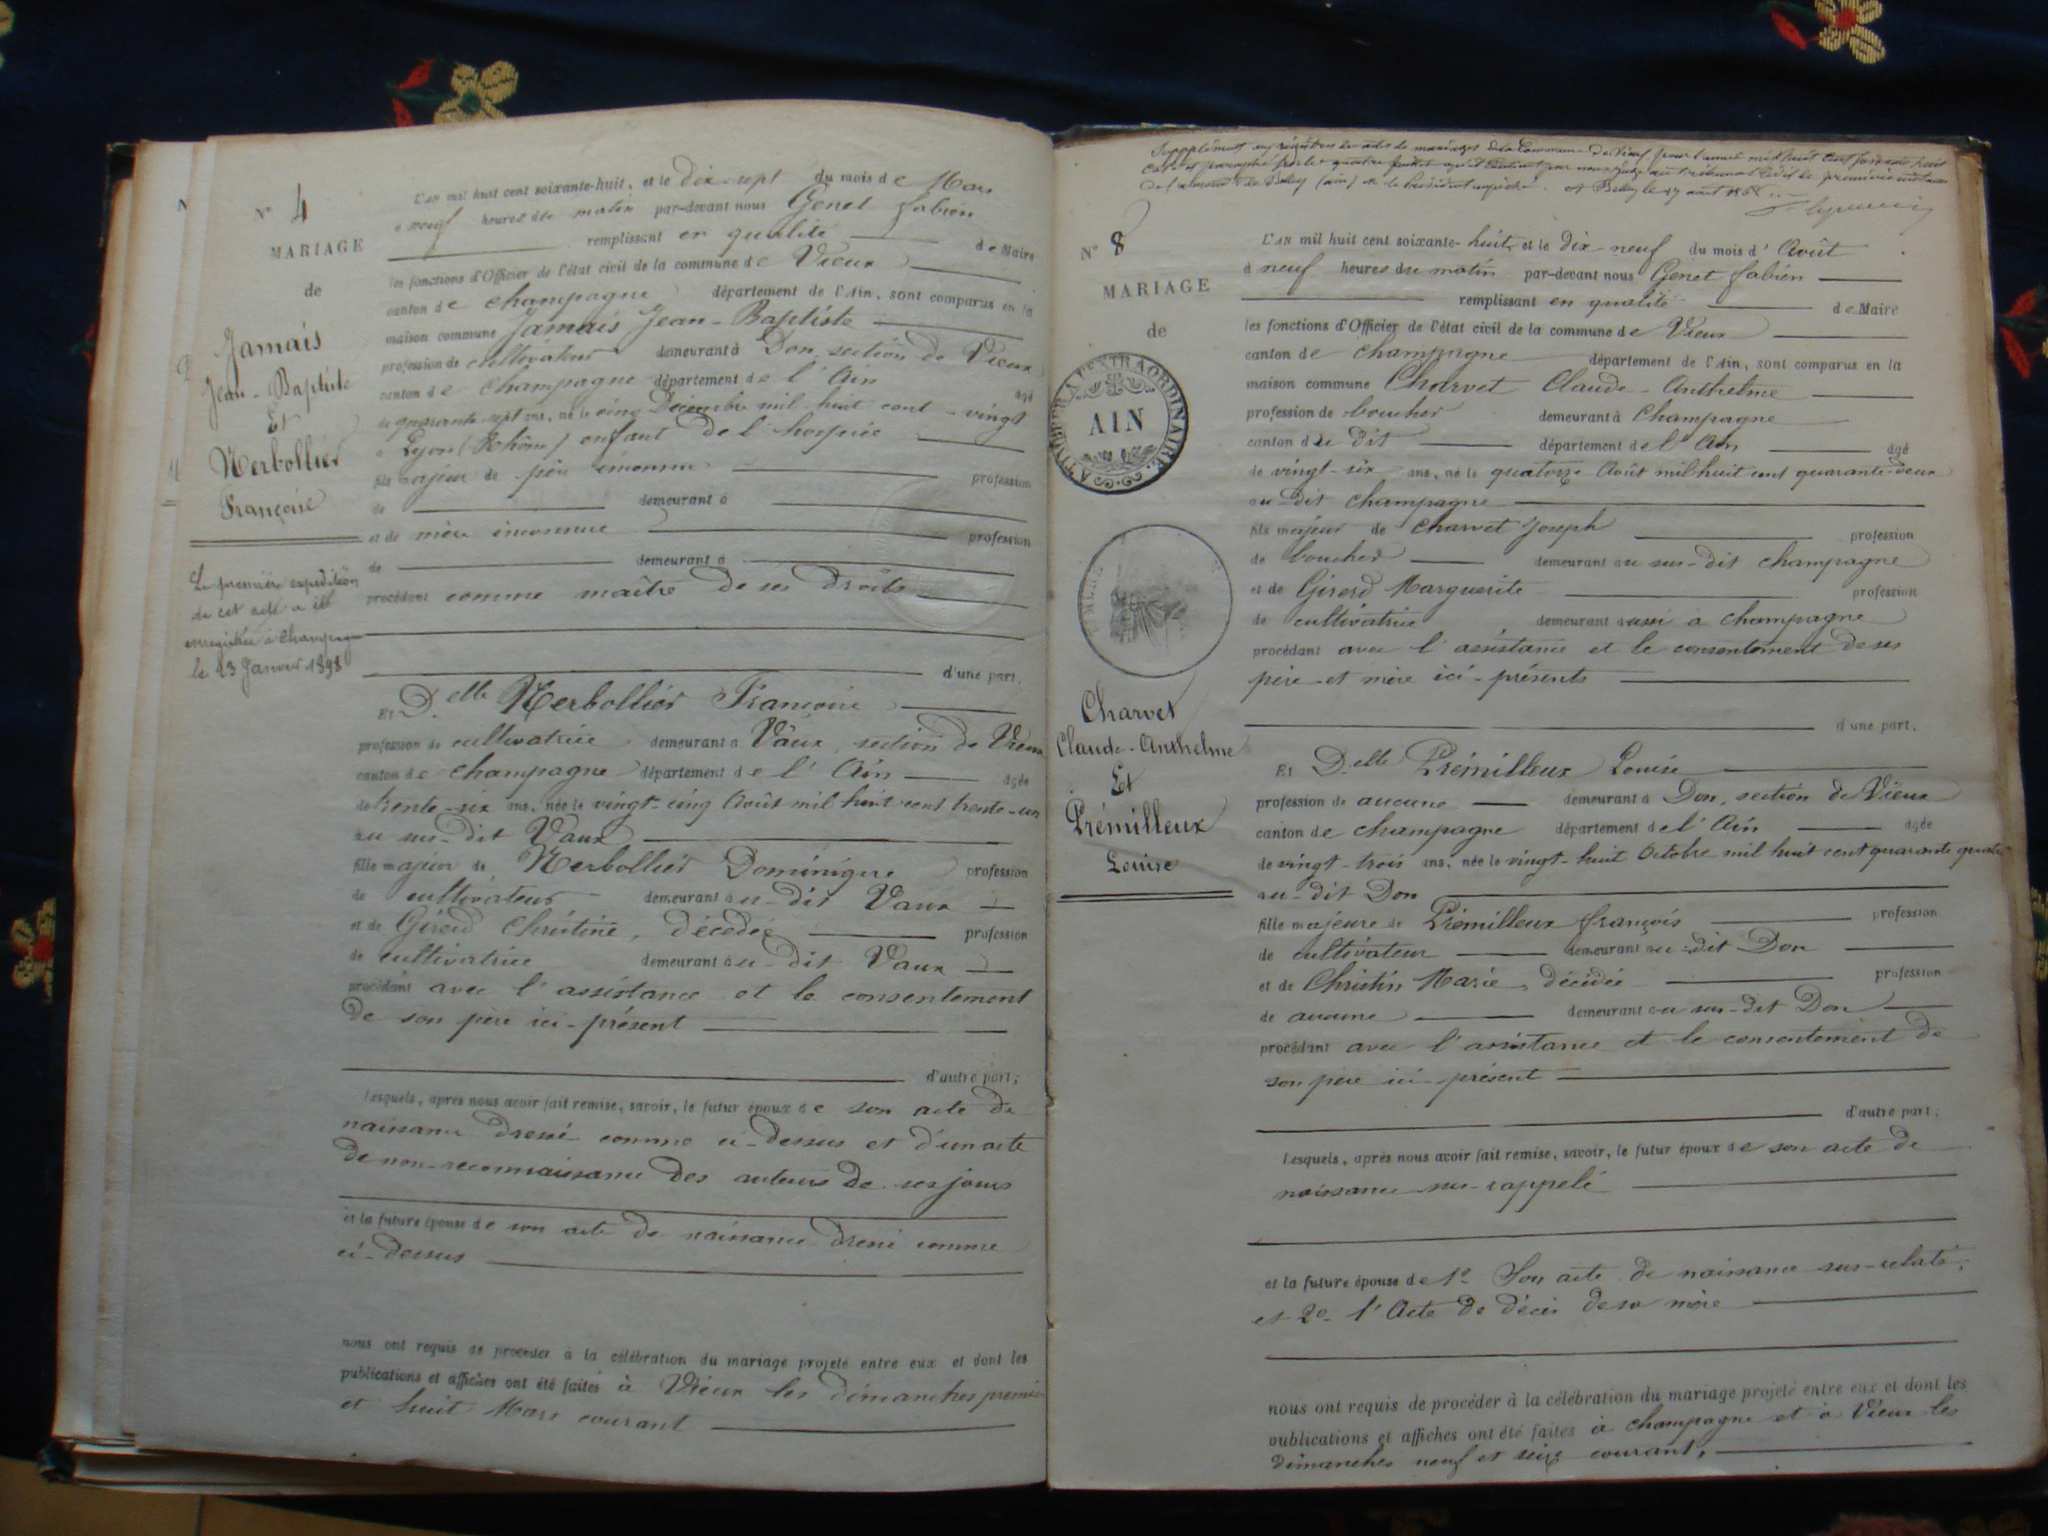 N° 4
MARIAGE
de
Jamais
Jean-Baptiste
Et
Nerbollier
Françoise
La première expédition
de cet acte a été
enregistrée à Champag
le 23 Janvier 1898
L'AN mil huit cent soixante-huit, et le dix-sept du mois de Mars
à neuf heures du matin par-devant nous Genet fabien
remplissant en qualité de Maire
les fonctions d'Officier de l'état civil de la commune de Vieux
canton de Champagne département de l'Ain, sont comparus en la
maison commune Jamais Jean-Baptiste
profession de cultivateur demeurant à Don, section de Vieux
canton de Champagne département de l'Ain agé
de quarante-sept ans, né le cinq Décembre mil huit cent-vingt
à Lyon (Rhône) enfant de l'hospice
fils majeur de père inconnu profession
de demeurant à
et de mère inconnue profession
de demeurant à
procédant comme maître de ses droits
d'une part.
Et D.elle Nerbollier Françoise
profession de cultivatrice demeurant à Vaux, section de Vieux
canton de Champagne département de l'Ain agée
de trente-six ans, née le vingt-cinq Août mil huit cent trente-un
au sus-dit Vaux
fille majeur de Nerbollier Dominique profession
de cultivateur demeurant au-dit Vaux
et de Girerd Christine, décédée profession
de cultivatrice demeurant au-dit Vaux
procédant avec l'assistance et le consentement
de son père ici-présent
d'autre part;
Lesquels, après nous avoir fait remise, savoir, le futur époux de son acte de
naissance dressé comme ci-dessus et d'un acte
de non-reconnaissance des auteurs de ses jours
et la future épouse de son acte de naissance dressé comme
ci-dessus
nous ont requis de procéder à la célébration du mariage projeté entre eux et dont les
publications et affiches ont été faites à Vieux les dimanches premier
et huit Mars courant
Supplément au registre des actes de mariages de la Commune de Vieux pour l'année mil huit cent soixante huit
Coté et paraphé par les quatre feuillets qu'il contient par nous juge au tribunal civil de première instance
de l'arrond. de Belley (Ain) Belley le 17 août 1868
N° 8
MARIAGE
de
A TIMBRER A L'EXTRAORDINAIRE
AIN
Charvet
Claude-Anthelme
Et
Prémilleux
Louise
L'AN mil huit cent soixante-huit, et le dix-neuf du mois d'Août
à neuf heures du matin par-devant nous Genet fabien
remplissant en qualité de Maire
les fonctions d'Officier de l'état civil de la commune de Vieux
canton de Champagne département de l'Ain, sont comparus en la
maison commune Charvet Claude-Anthelme
profession de boucher demeurant à Champagne
canton du dit département de l'Ain agé
de vingt-six ans, né le quatorze Août mil huit cent quarante-deux
au-dit Champagne
fils majeur de Charvet Joseph profession
de boucher demeurant au sus-dit Champagne
et de Girerd Marguerite profession
de cultivatrice demeurant aussi à Champagne
procédant avec l'assistance et le consentement de ses
père et mère ici-présents
d'une part.
Et D.elle Prémilleux Louise
profession de aucune demeurant à Don, section de Vieux
canton de Champagne département de l'Ain agée
de vingt-trois ans, née le vingt-huit Octobre mil huit cent quarante quatre
au-dit Don
fille majeure de Prémilleux françois profession
de cultivateur demeurant au-dit Don
et de Christin Marie, décédée profession
de aucune demeurant au sus-dit Don
procédant avec l'assistance et le consentement de
son père ici-présent
d'autre part;
Lesquels, après nous avoir fait remise, savoir, le futur époux de son acte de
naissance sus-rappelé
et la future épouse de 1° Son acte de naissance sus-relaté,
et 2° l'Acte de décès de sa mère
nous ont requis de procéder à la célébration du mariage projeté entre eux et dont les
publications et affiches ont été faites à Champagne et à Vieux les
dimanches neuf et seize courant,